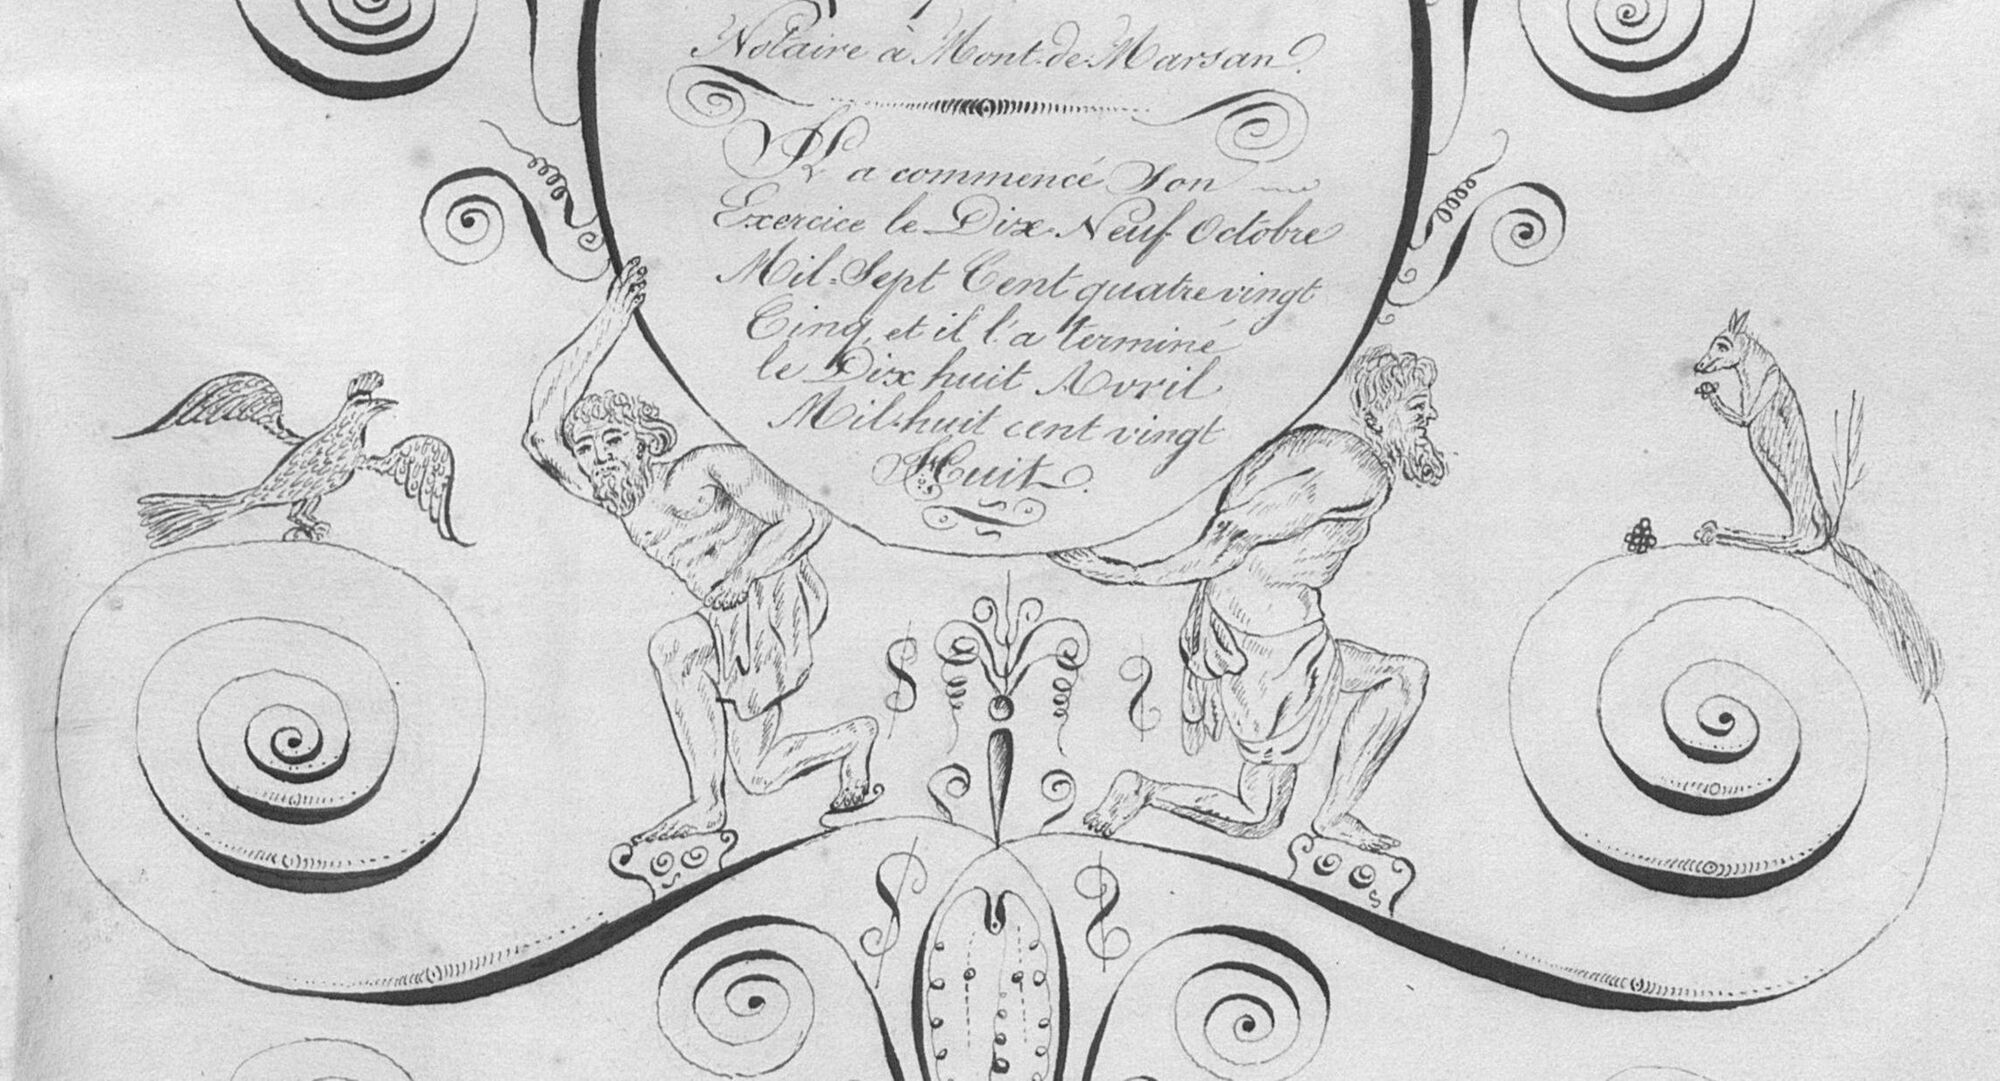 Notaire à Mont-de-Marsan.
Il a commencé Son
Exercice le Dix-Neuf Octobre
Mil-Sept Cent quatre vingt
Cinq, et il l'a terminé
le Dix huit Avril
Mil-huit cent vingt
Huit.